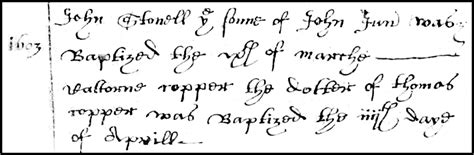 John Stonell yͤ sonne of John Jun was
1603 Baptized the xxͭͪ of marche
copper the dotter of thomas
copper was Baptized the iiijͭͪ daye
of Aprill